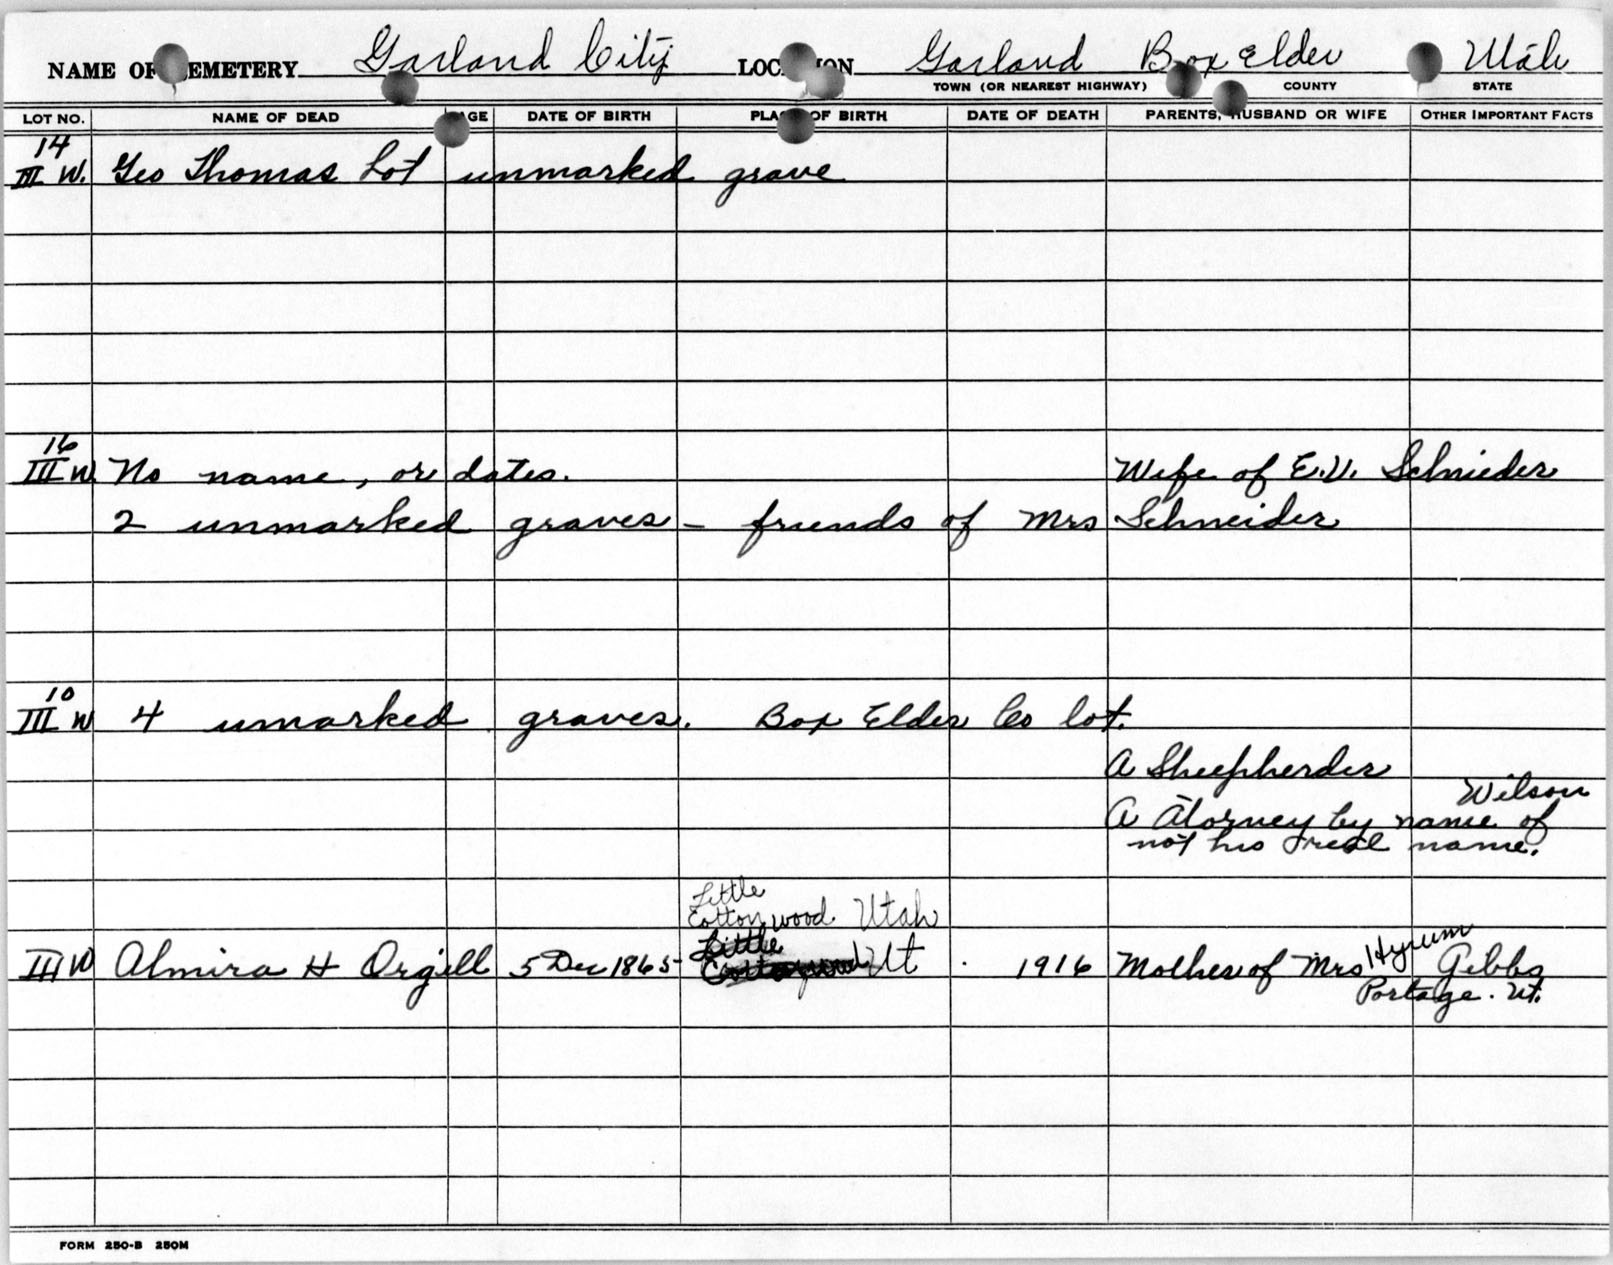 NAME OF CEMETERY Garland City LOCATION Garland Box Elder Utah
TOWN (OR NEAREST HIGHWAY) COUNTY STATE
LOT NO. NAME OF DEAD AGE DATE OF BIRTH PLACE OF BIRTH DATE OF DEATH PARENTS, HUSBAND OR WIFE OTHER IMPORTANT FACTS
14
III W. Geo Thomas Lot unmarked grave
16
III W No name, or dates. Wife of E.V. Schnieder
2 unmarked graves - friends of Mrs Schneider
10
III W 4 umarked graves. Box Elder Co lot.
A Sheepherder
Wilson
A Atorney by name of
not his real name.
Little
Cottonwood Utah
Little
III W Almira H Orgill 5 Dec 1865 Cottonwood Ut 1916 Mother of Mrs Hyrum Gibbs
Portage. Ut.
FORM 250-B 250M